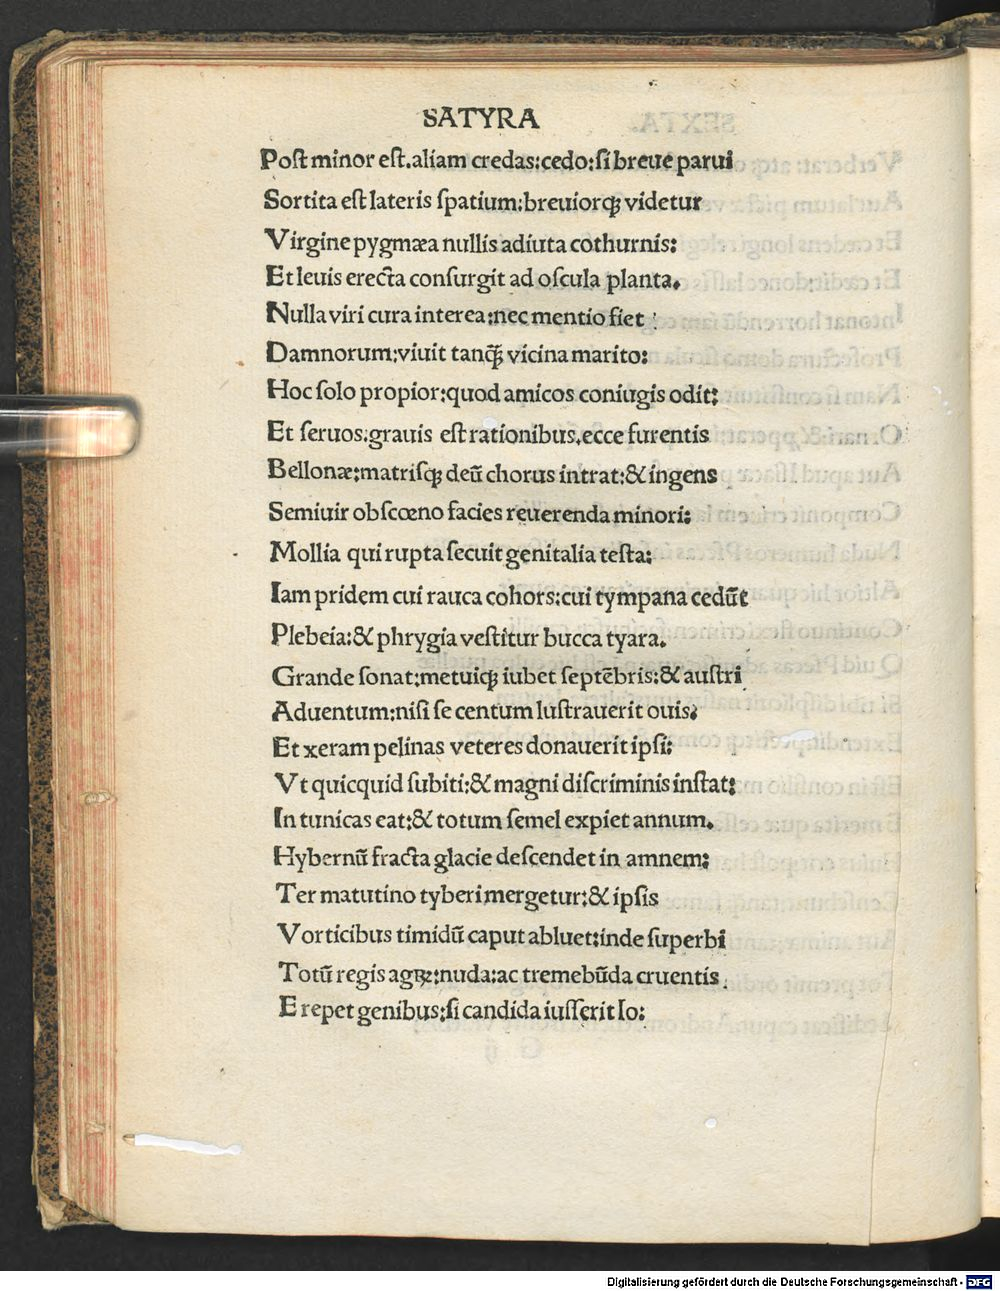 SATYRA
Post minor est.aliam credas:cedo:si breue parui
Sortita est lateris spatium:breuiorqꝫ videtur
Virgine pygmæa nullis adiuta cothurnis:
Et leuis erecta consurgit ad oscula planta.
Nulla viri cura interea:nec mentio fiet
Damnorum:viuit tanqꝫ̃ vicina marito:
Hoc solo propior:quod amicos coniugis odit:
Et seruos:grauis est rationibus.ecce furentis
Bellonæ:matrisqꝫ deũ chorus intrat:& ingens
Semiuir obscœno facies reuerenda minori:
Mollia qui rupta secuit genitalia testa:
Iam pridem cui rauca cohors:cui tympana cedũt
Plebeia:& phrygia vestitur bucca tyara.
Grande sonat:metuiqꝫ iubet septẽbris:& austri
Aduentum:nisi se centum lustrauerit ouis:
Et xeram pelinas veteres donauerit ipsi:
Vt quicquid subiti:& magni discriminis instat:
In tunicas eat:& totum semel expiet annum.
Hybernũ fracta glacie descendet in amnem:
Ter matutino tyberi mergetur:& ipsis
Vorticibus timidũ caput abluet:inde superbi
Totũ regis agꝝ:nuda:ac tremebũda cruentis.
Erepet genibus:si candida iusserit Io:
Digitalisierung gefördert durch die Deutsche Forschungsgemeinschaft - DFG